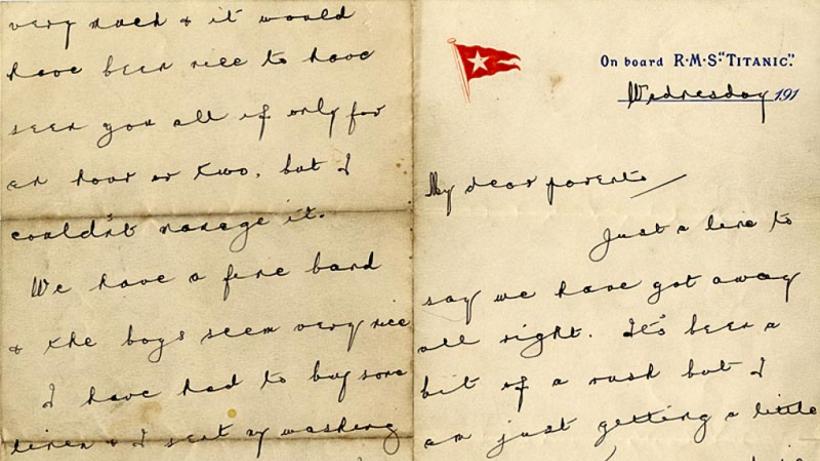 very much & it would
have been nice to have
seen you all if only for
an hour or two, but I
couldn't manage it.
We have a fine band
& the boys seem very nice
I have had to buy some
linen & I sent my washing
On board R·M·S "TITANIC".
Wednesday 191
My dear parents
Just a line to
say we have got away
all right. It's been a
bit of a rush but I
am just getting a little